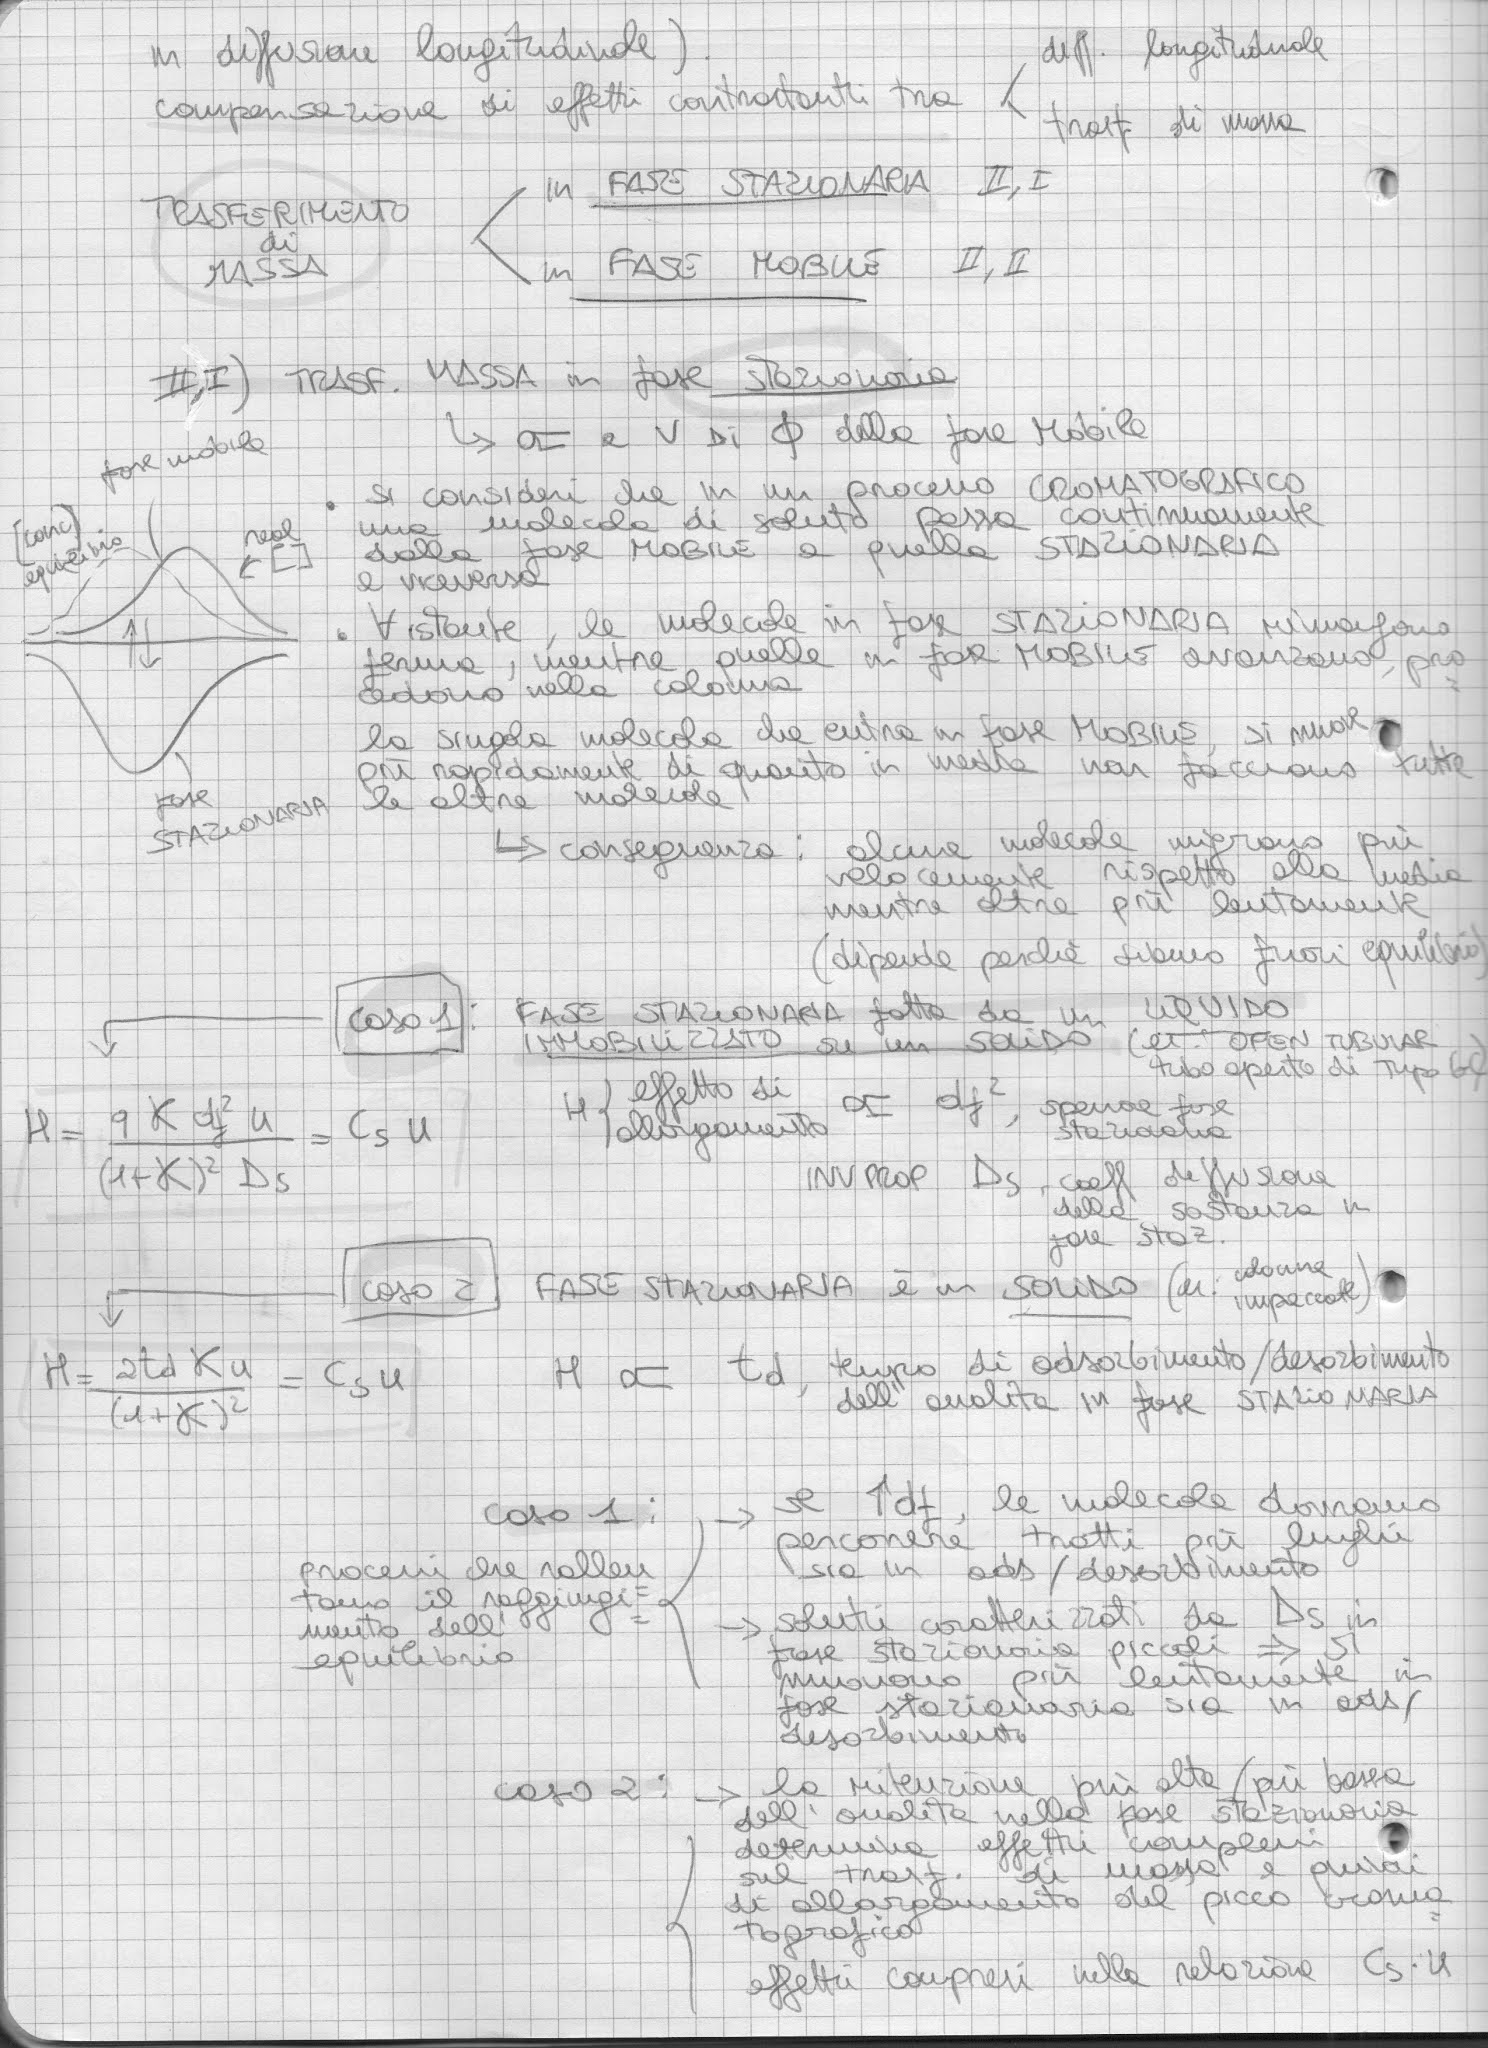 in diffusione longitudinale).
compensazione di effetti contrastanti tra < diff. longitudinale
trasf. di massa
TRASFERIMENTO
di
MASSA
in FASE STAZIONARIA II, I
in FASE MOBILE II, II
II, I) TRASF. MASSA in fase stazionaria
↳ ∝ a V di Φ della fase Mobile
fase mobile
[conc]
equilibrio
real
[ ]
fase
STAZIONARIA
• si consideri che in un processo CROMATOGRAFICO
una molecola di soluto passa continuamente
dalla fase MOBILE a quella STAZIONARIA
e viceversa
• ∀ istante, le molecole in fase STAZIONARIA rimangono
ferme, mentre quelle in fase MOBILE avanzano, pro=
cedono nella colonna
la singola molecola che entra in fase MOBILE, si muove
più rapidamente di quanto in media non facciano tutte
le altre molecole
↳ conseguenza: alcune molecole migrano più
velocemente rispetto alla media
mentre altre più lentamente
(dipende perchè siamo fuori equilibrio)
caso 1: FASE STAZIONARIA fatta da un LIQUIDO
IMMOBILIZZATO su un SOLIDO (es: OPEN TUBULAR
tubo aperto di Tipo GC)
H = q K df² u / (1+K)² Ds = Cs u
H { effetto di
allargamento ∝ df², spessore fase
stazionaria
INV PROP Ds, coeff diffusione
della sostanza in
fase staz.
caso 2 FASE STAZIONARIA è un SOLIDO (es: colonne
impaccate)
H = 2td K u / (1+K)² = Cs u
H ∝ td, tempo di adsorbimento/desorbimento
dell'analita in fase STAZIONARIA
caso 1:
processi che rallen
tano il raggiungi=
mento dell'
equilibrio
→ se ↑df, le molecole dovranno
percorrere tratti più lunghi
sia in ads/desorbimento
→ soluti caratterizzati da Ds in
fase stazionaria piccoli ⇒ si
muovono più lentamente in
fase stazionaria sia in ads/
desorbimento
caso 2: → la ritenzione più alta/più bassa
dell'analita nella fase stazionaria
determina effetti complessi
sul trasf. di massa e quindi
di allargamento del picco croma=
tografico
effetti compresi nella relazione Cs·u